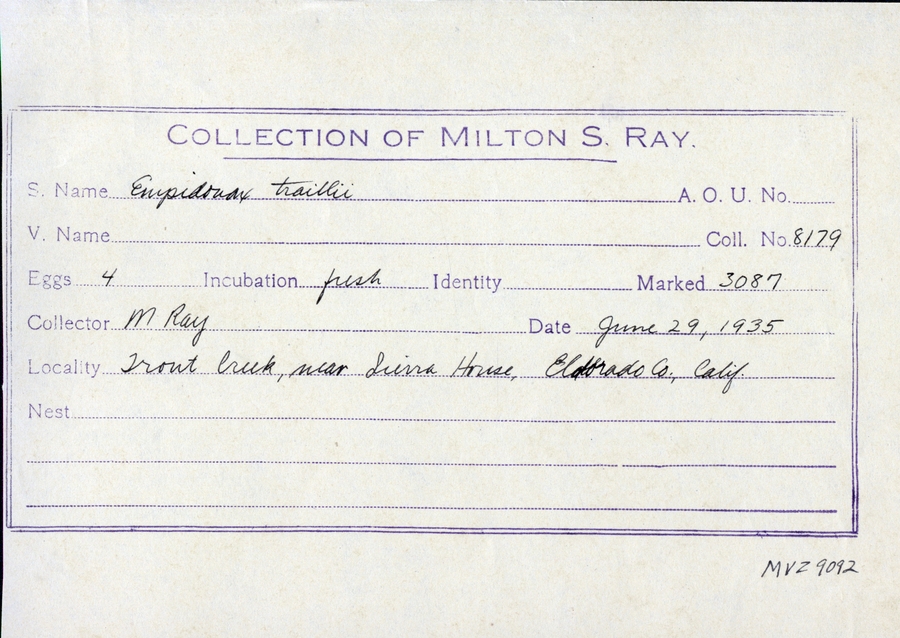 COLLECTION OF MILTON S. RAY.
S. Name Empidonax traillii A. O. U. No.
V. Name Coll. No. 8179
Eggs 4 Incubation fresh Identity Marked 3087
Collector M Ray Date June 29, 1935
Locality Trout Creek, near Sierra House, Eldorado Co., Calif.
Nest
MVZ 9092